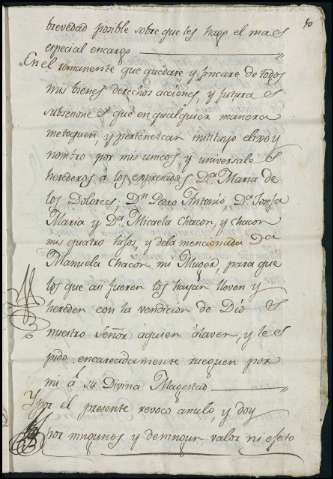 10
brevedad posible sobre que les hago el mas
especial encargo
En el remanente que quedare y fincare de todos
mis bienes derechos acciones, y futuras
subseciones qe. en qualquier manera
me toquen y pertenezcan instituyo elixo y
nombro por mis unicos, y universales
herederos à los expresados Da. Maria de
los Dolores, Dn. Pedro Antonio, Da. Josefa
Maria y Da. Micaela Chacon, y Chacon
mis quatro hijos, y dela mencionada Da
Manuela Chacon mi Muger, para que
los que asi fueren los hayan lleven y
hereden con la vendicion de Dios
nuestro Señor aquien alaven, y les
pido encarecidamente rueguen por
mi à su Divina Magestad
Y por el presente revoco anulo, y doy
por ningunos y deningun valor ni efecto